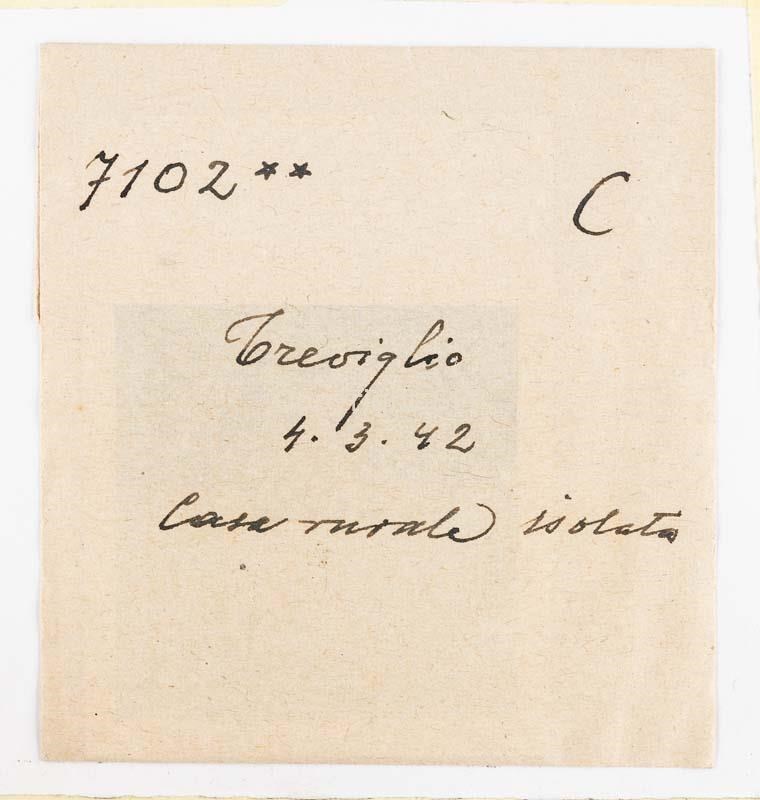 7102** C
Treviglio
4.3.42
Casa rurale isolata